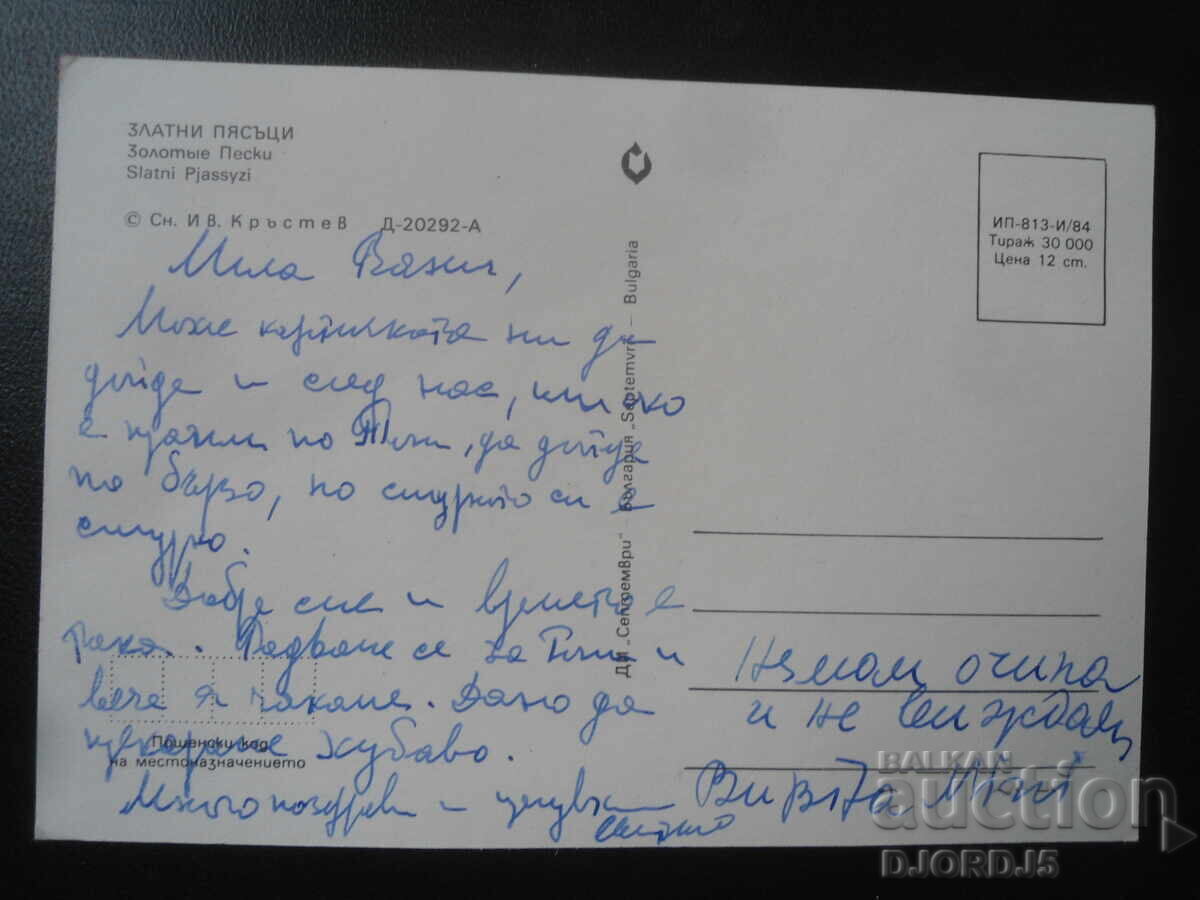 ЗЛАТНИ ПЯСЪЦИ
Золотые Пески
Slatni Pjassyzi
© Сн. Ив. Кръстев Д-20292-А
Мила
Може картичката ни да
дойде и след нас,
е пратим по Тони, да дойде
по бързо, но сигурното си е
сигурно.
Добре сме и времето е
така. Радваме се за и
вече я чакаме. Дано да
прекараме хубаво.
Много поздрави и целувки
ДИ „Септември" – България „Septemvri – Bulgaria
ИП-813-И/84
Тираж 30 000
Цена 12 ст.
Нямам очила
и не виждам
Пощенски код
на местоназначението
BALKAN
auction
DJORDJ5